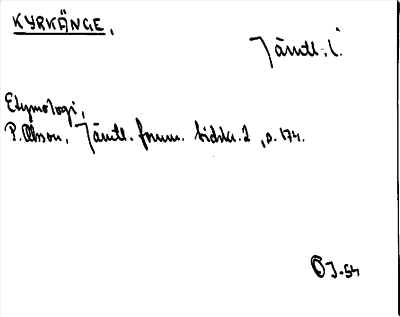 KYRKÄNGE,
Jämtl. l.
Etymologi,
P. Olsson, Jämtl. fornm. tidskr. 2, p. 174.
ÖJ-54